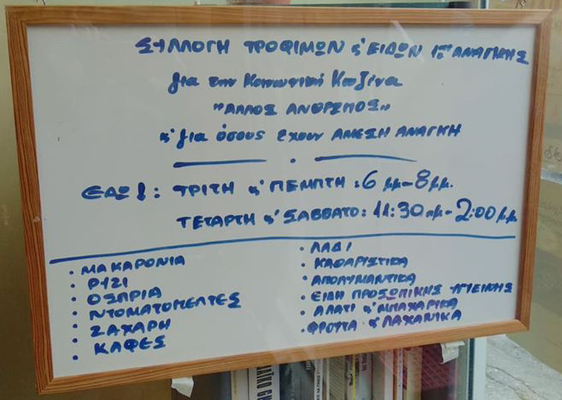 ΣΥΛΛΟΓΗ ΤΡΟΦΙΜΩΝ κ' ΕΙΔΩΝ 1ης ΑΝΑΓΚΗΣ
για την Κοινωνική Κουζίνα
"ΑΛΛΟΣ ΑΝΘΡΩΠΟΣ"
κ' για όσους έχουν ΑΜΕΣΗ ΑΝΑΓΚΗ
ΕΔΩ!: ΤΡΙΤΗ κ' ΠΕΜΠΤΗ: 6 μμ-8 μμ.
ΤΕΤΑΡΤΗ κ' ΣΑΒΒΑΤΟ: 11:30 πμ-2:00 μμ
• ΜΑΚΑΡΟΝΙΑ
• ΡΥΖΙ
• ΟΣΠΡΙΑ
• ΝΤΟΜΑΤΟΠΕΛΤΕΣ
• ΖΑΧΑΡΗ
• ΚΑΦΕΣ
• ΛΑΔΙ
• ΚΑΘΑΡΙΣΤΙΚΑ
• ΑΠΟΛΥΜΑΝΤΙΚΑ
• ΕΙΔΗ ΠΡΟΣΩΠΙΚΗΣ ΥΓΙΕΙΝΗΣ
• ΑΛΑΤΙ κ' ΜΠΑΧΑΡΙΚΑ
• ΦΡΟΥΤΑ κ' ΛΑΧΑΝΙΚΑ